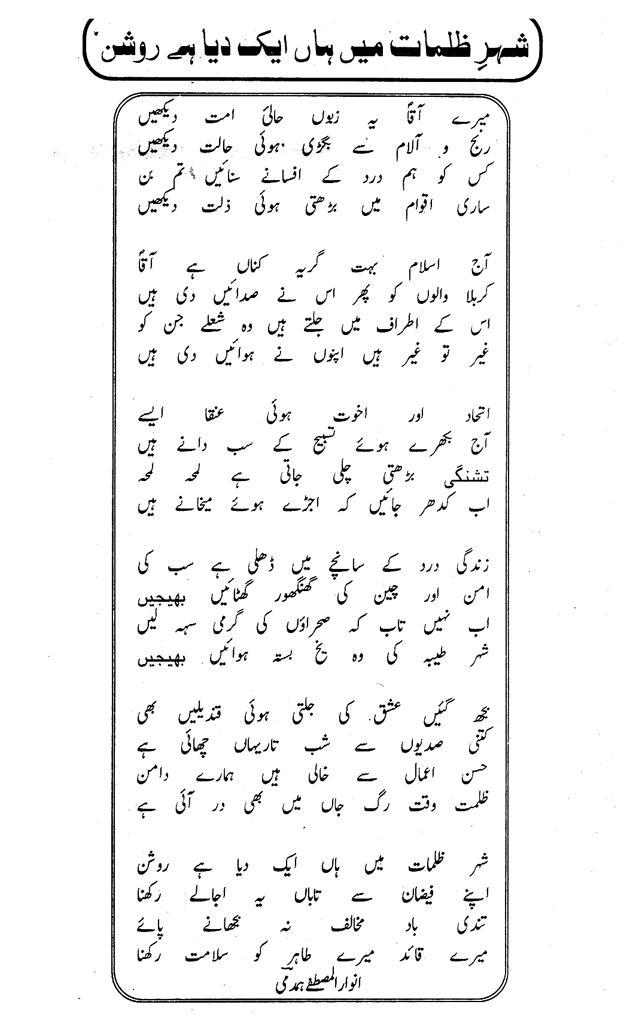 شہرِ ظلمات میں ہاں ایک دیا ہے روشن
میرے آقاؐ یہ زبوں حالیٔ امت دیکھیں
رنج و آلام سے بگڑی ہوئی حالت دیکھیں
کس کو ہم درد کے افسانے سنائیں تم بن
ساری اقوام میں بڑھتی ہوئی ذلت دیکھیں
آج اسلام بہت گریہ کناں ہے آقاؐ
کربلا والوں کو پھر اس نے صدائیں دی ہیں
اس کے اطراف میں جلتے ہیں وہ شعلے جن کو
غیر تو غیر ہیں اپنوں نے ہوائیں دی ہیں
اتحاد اور اخوت ہوئی عنقا ایسے
آج بکھرے ہوئے تسبیح کے سب دانے ہیں
تشنگی بڑھتی چلی جاتی ہے لمحہ لمحہ
اب کدھر جائیں کہ اجڑے ہوئے میخانے ہیں
زندگی درد کے سانچے میں ڈھلی ہے سب کی
امن اور چین کی گھنگھور گھٹائیں بھیجیں
اب نہیں تاب کہ صحراؤں کی گرمی سہہ لیں
شہر طیبہ کی وہ یخ بستہ ہوائیں بھیجیں
بجھ گئیں عشق کی جلتی ہوئی قندیلیں بھی
کتنی صدیوں سے شب تاریہاں چھائی ہے
حسن اعمال سے خالی ہیں ہمارے دامن
ظلمت وقت رگ جاں میں بھی در آئی ہے
شہر ظلمات میں ہاں ایک دیا ہے روشن
اپنے فیضان سے تاباں یہ اجالے رکھنا
تندی باد مخالف نہ بجھانے پائے
میرے قائد میرے طاہر کو سلامت رکھنا
انوار المصطفےٰ ہمدمی